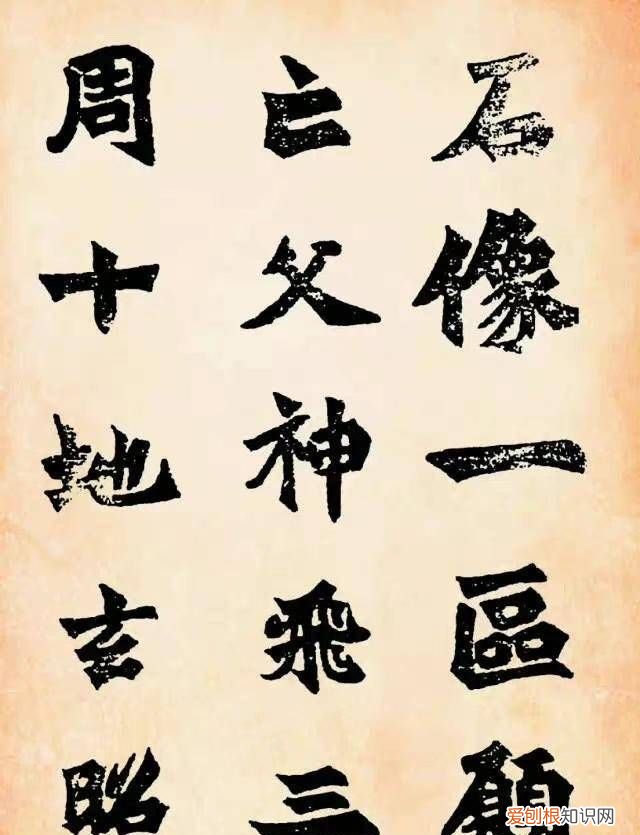 石像一區願
亡父神飛三
周十地玄照
爱刨根知识网